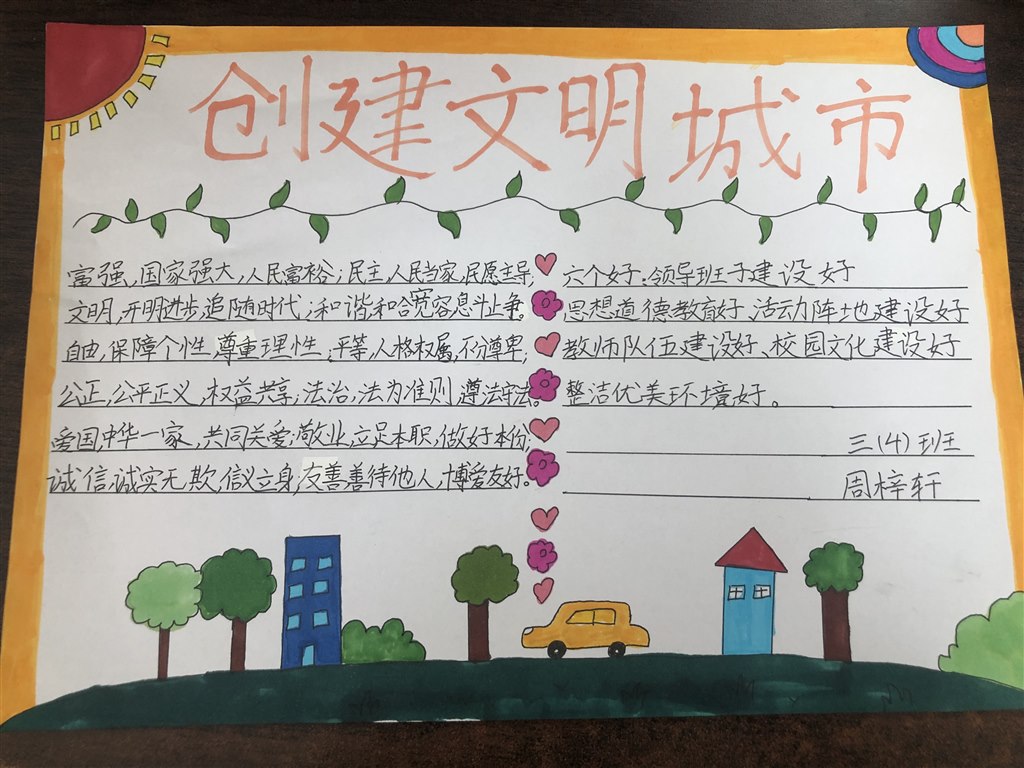 创建文明城市
富强,国家强大,人民富裕;民主,人民当家,民愿主导;
文明,开明进步,追随时代;和谐,和合宽容,息斗止争。
自由,保障个性,尊重理性;平等,人格权属,不分尊卑;
公正,公平正义,权益共享;法治,法为准则,遵法守法。
爱国,中华一家,共同关爱;敬业,立足本职,做好本份;
诚信,诚实无欺,信议立身;友善,善待他人,博爱友好。
六个好:领导班子建设好
思想道德教育好、活动阵地建设好
教师队伍建设好、校园文化建设好
整洁优美环境好。
三(4)班
周梓轩